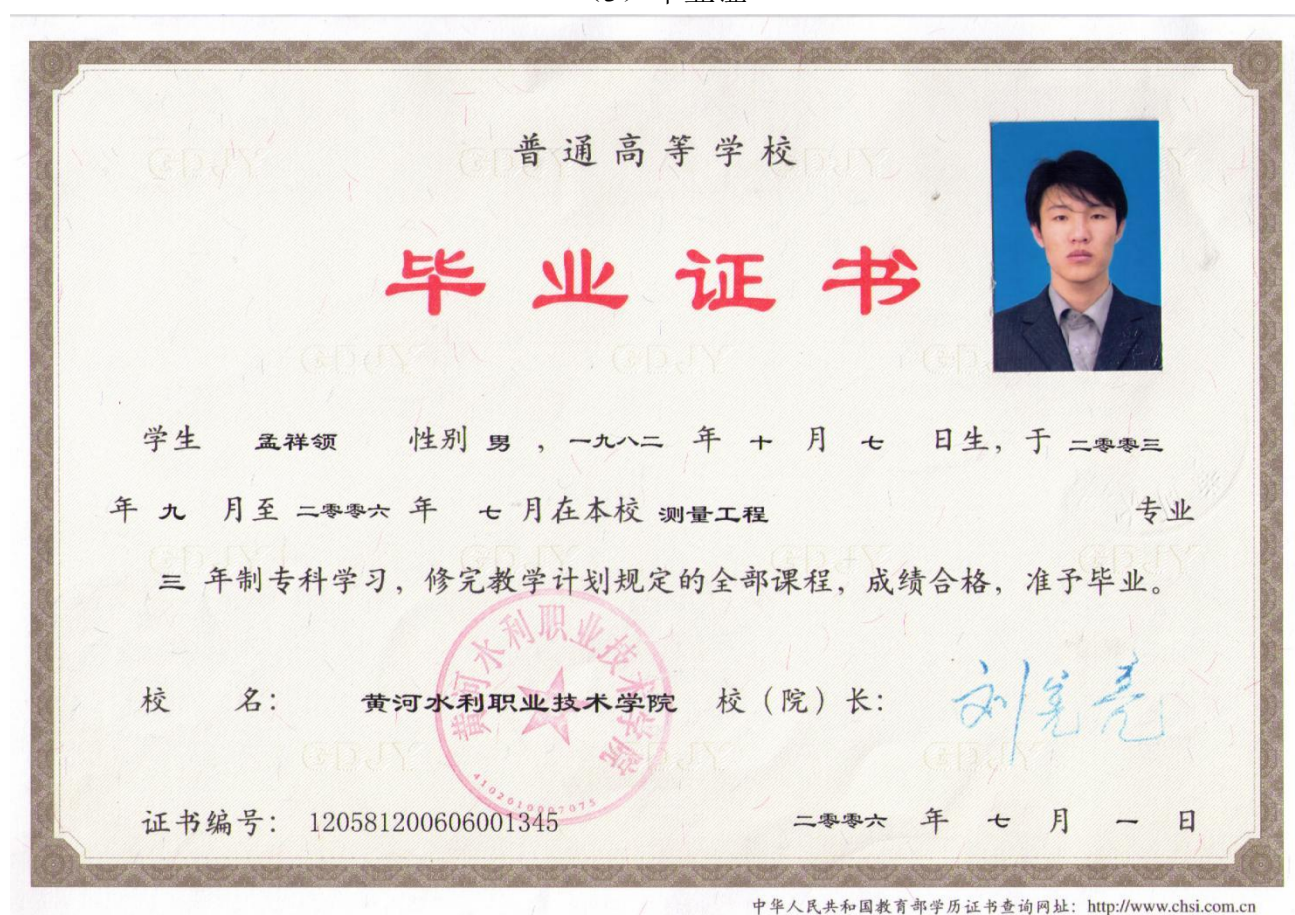 普通高等学校
毕业证书
学生 孟祥领 性别 男 ，一九八二 年 十 月 七 日生，于 二零零三
年 九 月至 二零零六 年 七 月在本校 测量工程 专业
三 年制专科学习，修完教学计划规定的全部课程，成绩合格，准予毕业。
黄河水利职业技术学院
4102010007075
校 名： 黄河水利职业技术学院 校（院）长：
证书编号： 120581200606001345 二零零六 年 七 月 一 日
中华人民共和国教育部学历证书查询网址：http://www.chsi.com.cn